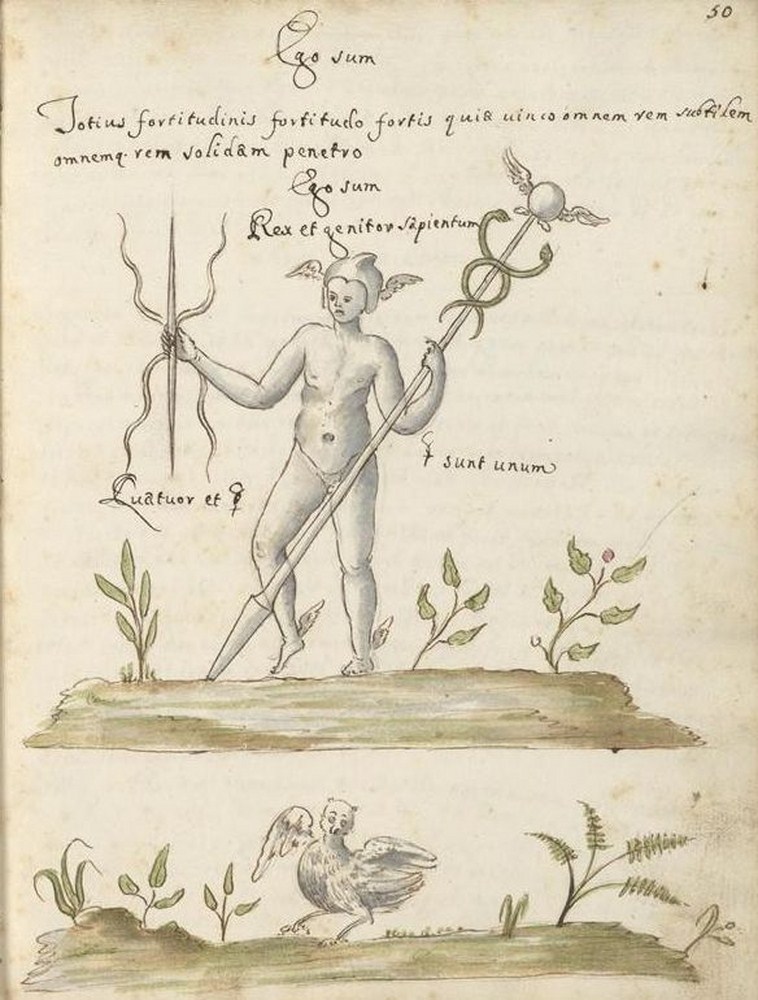 50
Ego sum
Totius fortitudinis fortitudo fortis quia uinco omnem rem subtilem
omnemq. rem solidam penetro
Ego sum
Rex et genitor sapientum
☿ sunt unum
Quatuor et ☿